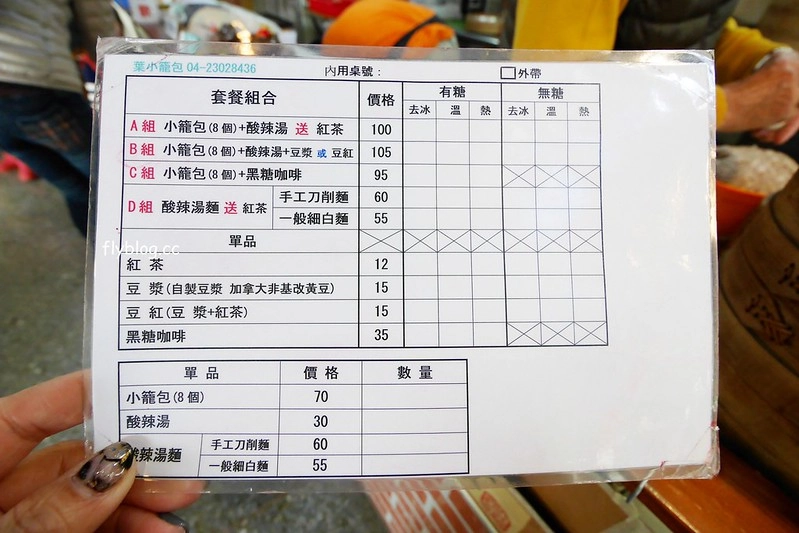 葉小籠包 04-23028436 內用桌號： 外帶
套餐組合 價格 有糖 無糖
去冰 溫 熱 去冰 溫 熱
A組 小籠包(8個)+酸辣湯 送 紅茶 100
B組 小籠包(8個)+酸辣湯+豆漿 或 豆紅 105
C組 小籠包(8個)+黑糖咖啡 95
D組 酸辣湯麵 送 紅茶 手工刀削麵 60
一般細白麵 55
單品
紅茶 12
豆漿(自製豆漿 加拿大非基改黃豆) 15
豆紅(豆漿+紅茶) 15
黑糖咖啡 35
單品 價格 數量
小籠包(8個) 70
酸辣湯 30
酸辣湯麵 手工刀削麵 60
一般細白麵 55
flyblog.cc